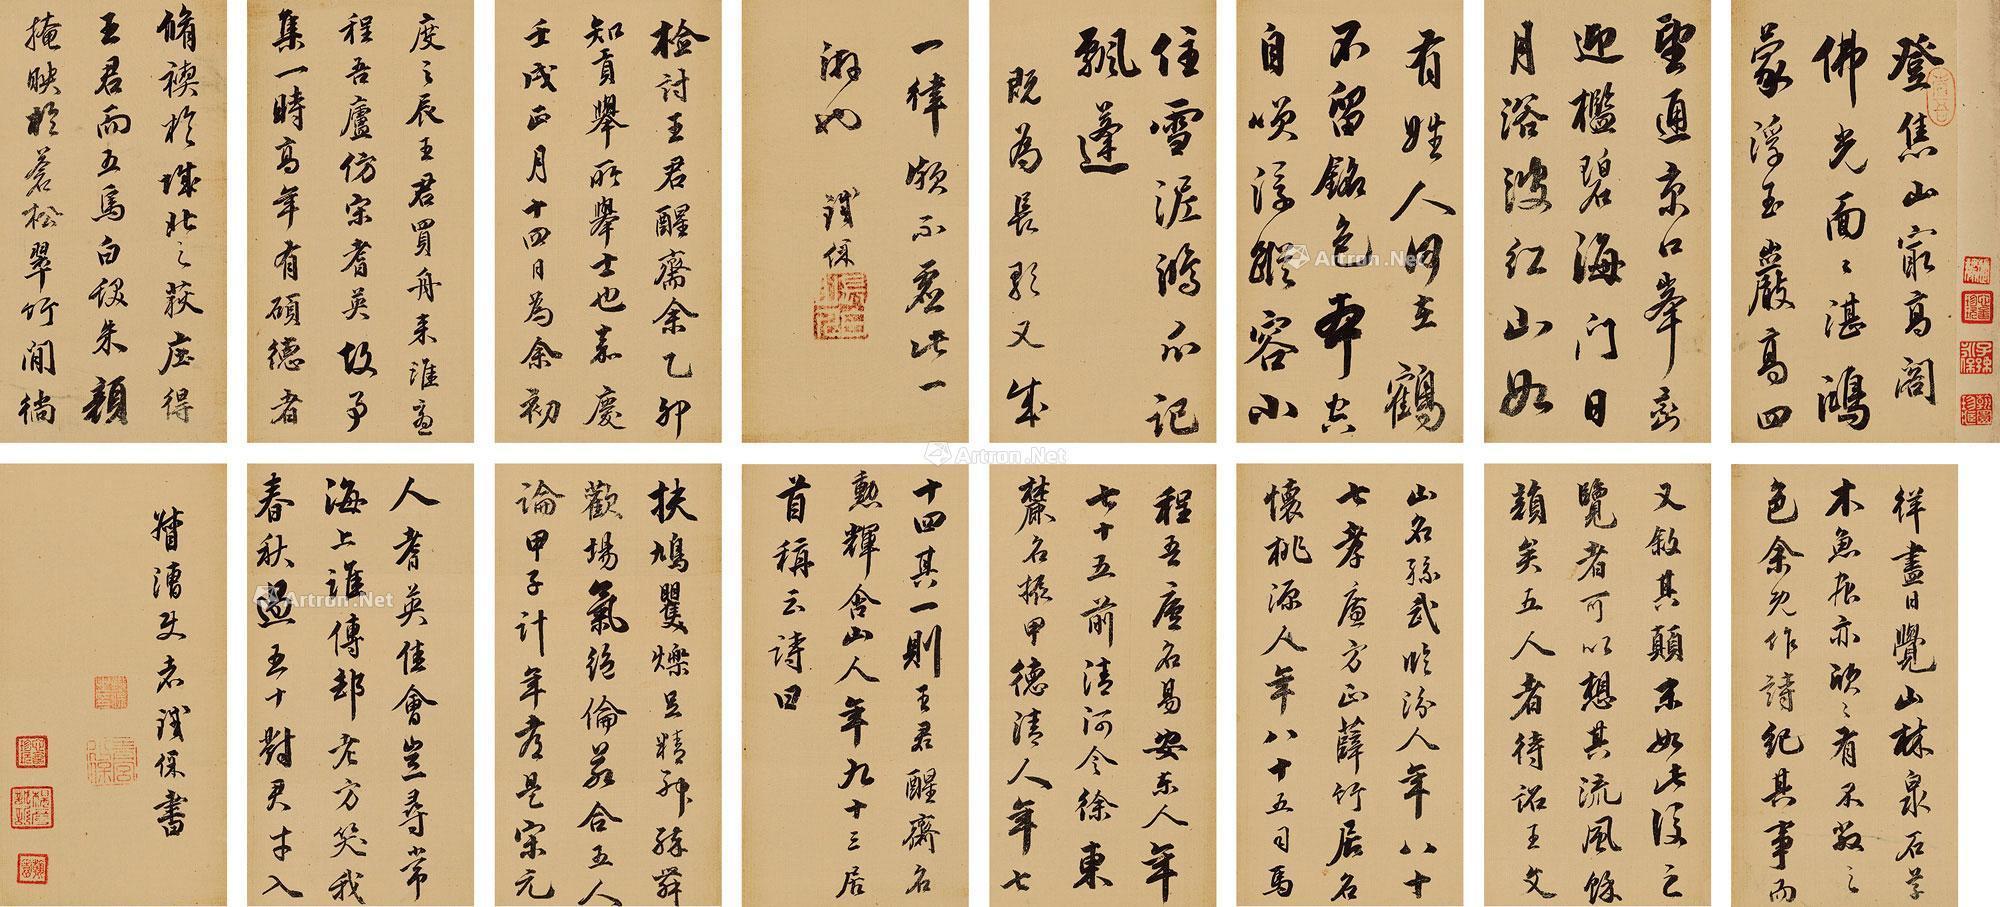 登焦山最高閣
佛光面面湛鴻
蒙浮玉巖高四
望通京口峯巒
迎檻碧海門日
月浴波紅山如
有姓人何在鶴
不留銘色本空
自嘆浮蹤容小
住雪泥鴻爪記
飄蓬
既為長歌又成
一律頗不虛此一
游也 鐵保
檢討王君醒齋余乙卯
知貢舉所舉士也嘉慶
壬戌正月十四日為余初
度之辰王君買舟來淮盦
程吾廬仿宋耆英故事
集一時高年有碩德者
脩禊於城北之荻莊得
王君而五馬白須朱顏
掩映於蒼松翠竹間徜
徉盡日覺山林泉石草
木魚
亦欣欣有
之
色余
作詩紀其事而
又敘其顛末如此後之
覽者可以想其流風餘
韻矣五人者待詔王文
山名
武臨汾人年八十
七孝廉方正薛竹居名
懷桃源人年八十五司馬
程吾廬名易安東人年
七十五前清河令徐東
麓名振甲德清人年七
十四其一則王君醒齋名
勲輝含山人年九十三居
首稱云詩曰
扶鳩矍爍足精神
歡場氣絕倫若合五人
論甲子計年應是宋元
人耆英佳會豈尋常
海上誰傳却老方笑我
春秋過五十對君才入
漕使者鐵保書
Artron.Net
Artron.Net
Artron.Net
Artron.Net